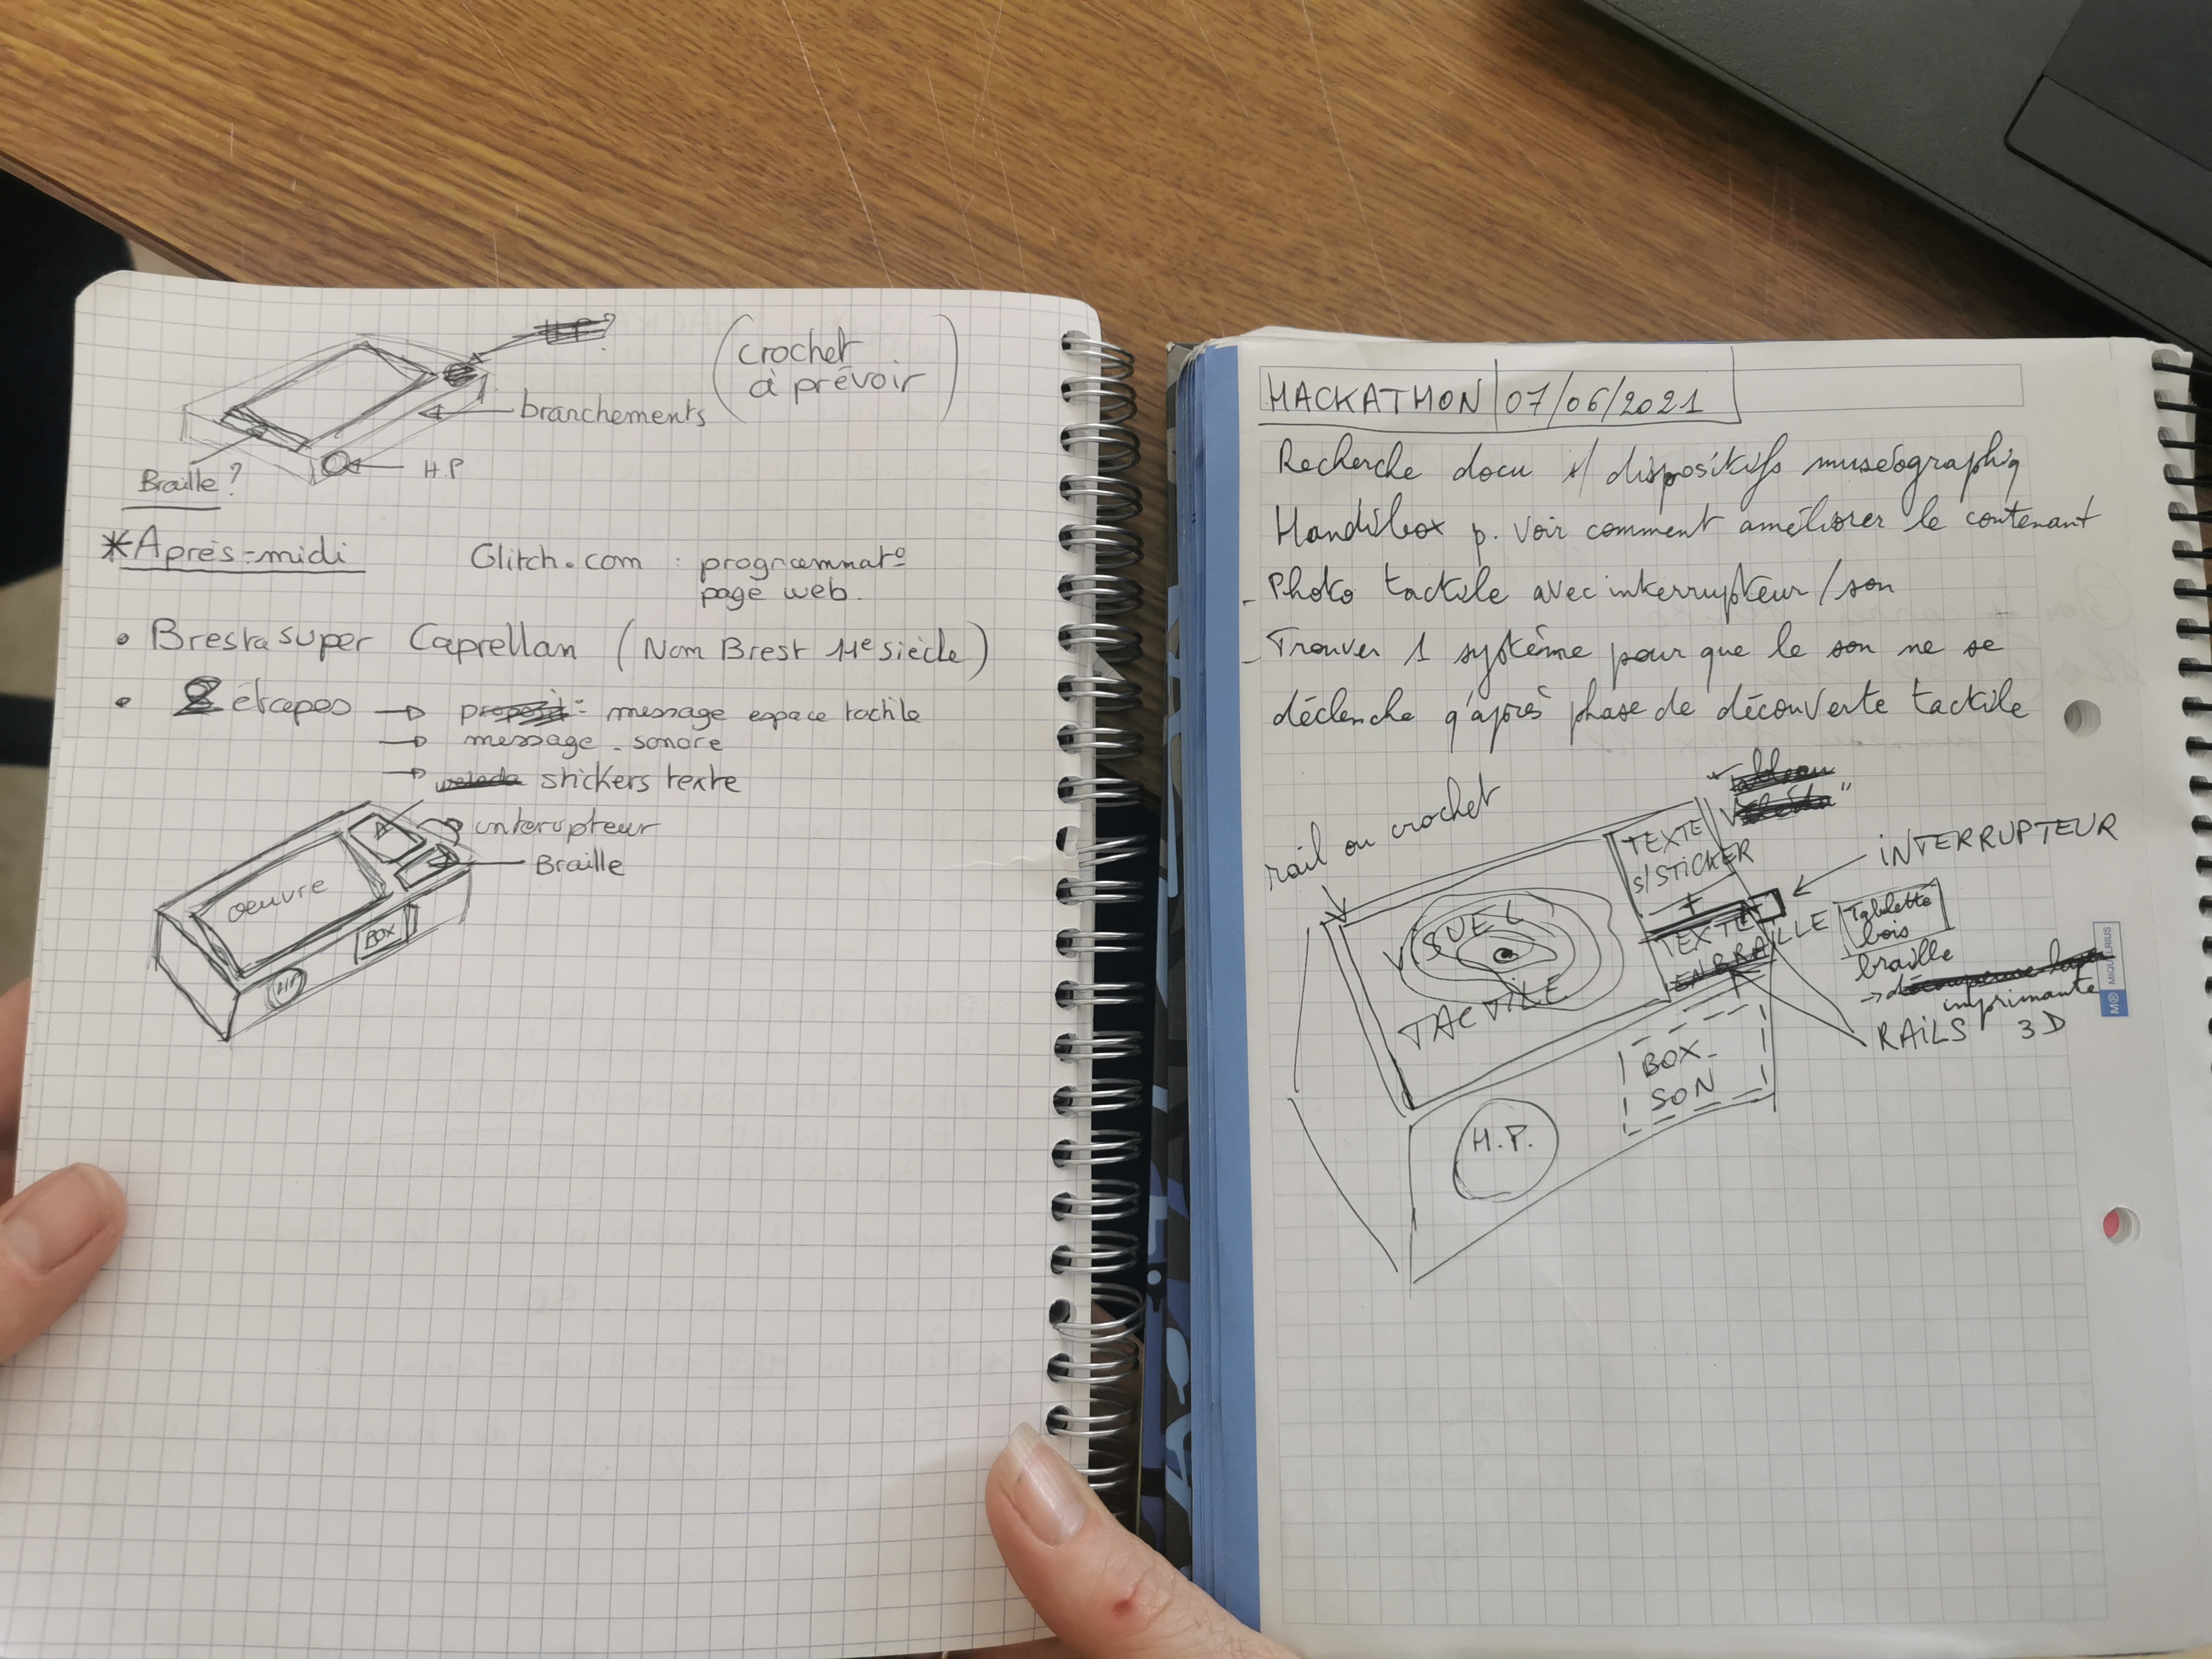 H.P?
(crochet
à prévoir)
branchements
H.P
Braille?
*Après-midi
Glitch.com : programmat°
page web.
• Bresta super Caprellan (Nom Brest 11e siècle)
• 2 étapes → message espace tactile
→ message sonore
→ stickers texte
interupteur
Braille
oeuvre
BOX
HP
HACKATHON 07/06/2021
Recherche docu s/ dispositifs muséographiq
Handibox p. voir comment améliorer le contenant
- Photo tactile avec interrupteur/son
- Trouver 1 système pour que le son ne se
déclenche q'après phase de découverte tactile
"Tableau
Velleda"
rail ou crochet
TEXTE
s/STICKER
+
INTERRUPTEUR
TEXTE
EN BRAILLE
Tablette
bois
braille
→ découpeuse laser
imprimante
3D
RAILS
VISUEL
TACTILE
BOX
SON
H.P.
MIQUELRIUS